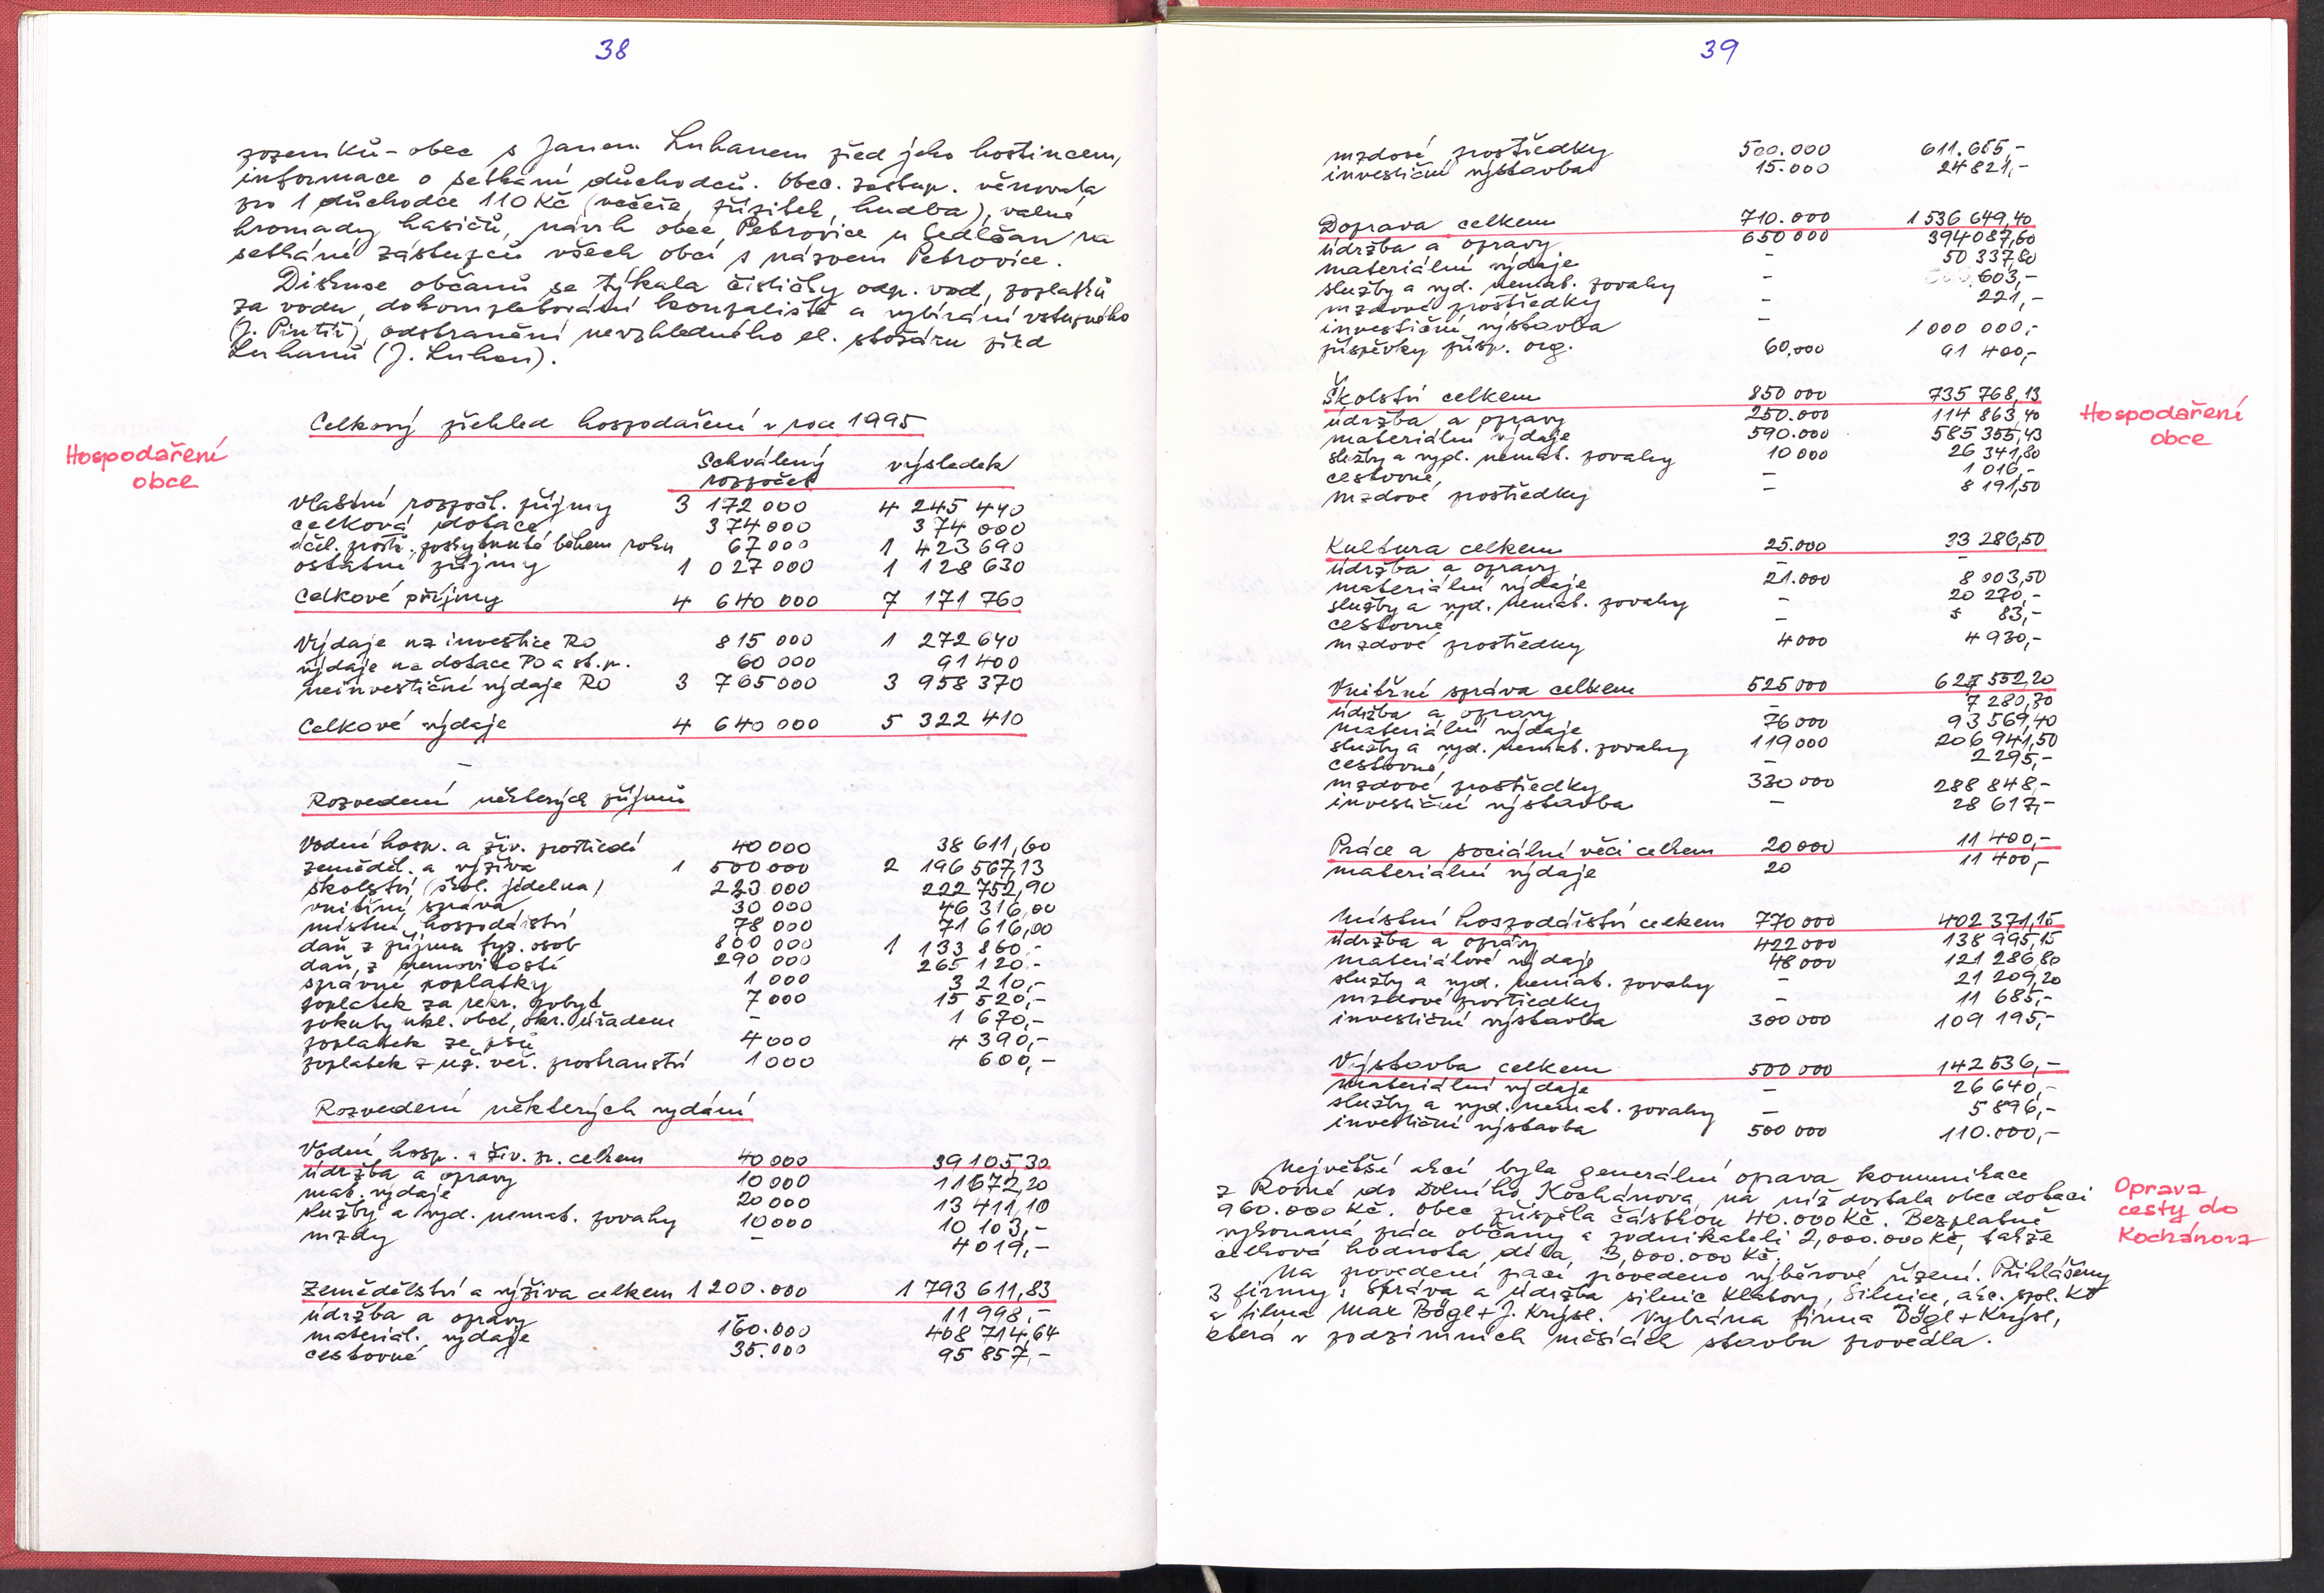 38
pozemků - obec s Janem Luhanem před jeho hostincem,
informace o setkání důchodců. Obec. zastup. věnovala
pro 1 důchodce 110 Kč (večeře, přípitek, hudba), valné
hromady hasičů, návrh obce Petrovice u Sedlčan na
setkání zástupců všech obcí s názvem Petrovice.
Diskuse občanů se týkala čističky odp. vod, poplatků
za vodu, dokompletování koupaliště a vybírání vstupného
(J. Pintíř), odstranění nevzhledného el. stožáru před
Luhanů (J. Luhan).
Celkový přehled hospodaření v roce 1995
Hospodaření
obce
Schválený výsledek
rozpočet
Vlastní rozpočt. příjmy 3 172 000 4 245 440
celková dotace 374 000 374 000
účel. prostř. poskytnuté během roku 67 000 1 423 690
ostatní příjmy 1 027 000 1 128 630
Celkové příjmy 4 640 000 7 171 760
Výdaje na investice RO 815 000 1 272 640
výdaje na dotace PO a st. p. 60 000 91 400
neinvestiční výdaje RO 3 765 000 3 958 370
Celkové výdaje 4 640 000 5 322 410
–
Rozvedení některých příjmů
Vodní hosp. a živ. prostředí 40 000 38 611,60
zeměděl. a výživa 1 500 000 2 196 567,13
školství (škol. jídelna) 223 000 222 752,90
vnitřní správa 30 000 46 316,00
místní hospodářství 78 000 71 616,00
daň z příjmu fyz. osob 800 000 1 133 860,-
daň z nemovitostí 290 000 265 120,-
správní poplatky 1 000 3 210,-
poplatek za rekr. pobyt 7 000 15 520,-
pokuty ukl. obcí, okr. úřadem – 1 670,-
poplatek ze psů 4 000 4 390,-
poplatek z už. veř. prostranství 1 000 600,-
Rozvedení některých vydání
Vodní hosp. a živ. pr. celkem 40 000 39 105,30
údržba a opravy 10 000 11 672,20
mat. výdaje 20 000 13 411,10
služby a vyd. nemat. povahy 10 000 10 103,-
mzdy – 4 019,-
Zemědělství a výživa celkem 1 200.000 1 793 611,83
údržba a opravy 11 998,-
materiál. výdaje 160.000 408 714,64
cestovné 35.000 95 857,-
39
mzdové prostředky 500.000 611.665,-
investiční výstavba 15.000 24 821,-
Doprava celkem 710.000 1 536 649,40
údržba a opravy 650 000 394 087,60
materiální výdaje – 50 337,80
služby a vyd. nemat. povahy – 603,-
mzdové prostředky – 221,-
investiční výstavba – 1 000 000,-
příspěvky přísp. org. 60,000 91 400,-
Školství celkem 850 000 735 768,13
údržba a opravy 250.000 114 863,40
materiální výdaje 590.000 585 355,43
služby a vyd. nemat. povahy 10 000 26 341,80
cestovné – 1 016,-
mzdové prostředky – 8 191,50
Hospodaření
obce
Kultura celkem 25.000 33 286,50
údržba a opravy – –
materiální výdaje 21.000 8 003,50
služby a vyd. nemat. povahy – 20 270,-
cestovné – 83,-
mzdové prostředky 4 000 4 930,-
Vnitřní správa celkem 525 000 627 552,20
údržba a opravy – 7 280,30
materiální výdaje 76 000 93 569,40
služby a vyd. nemat. povahy 119 000 206 941,50
cestovné – 2 295,-
mzdové prostředky 330 000 288 848,-
investiční výstavba – 28 617,-
Práce a sociální věci celkem 20 000 11 400,-
materiální výdaje 20 11 400,-
Místní hospodářství celkem 770 000 402 371,15
údržba a opravy 422 000 138 995,15
materiálové výdaje 48 000 121 286,80
služby a vyd. nemat. povahy – 21 209,20
mzdové prostředky – 11 685,-
investiční výstavba 300 000 109 195,-
Výstavba celkem 500 000 142 536,-
materiální výdaje – 26 640,-
služby a vyd. nemat. povahy – 5 896,-
investiční výstavba 500 000 110.000,-
Největší akcí byla generální oprava komunikace
z Rovné do Dolního Kochánova, na níž dostala obec dotaci
960.000 Kč. Obec přispěla částkou 40.000 Kč. Bezplatně
vykonaná práce občany a podnikateli 2,000.000 Kč, takže
celková hodnota díla 3,000.000 Kč.
Oprava
cesty do
Kochánova
Na povedení prací provedeno výběrové řízení. Přihlášeny
3 firmy: Správa a údržba silnic Klatovy, Silnice, akc. spol. KT
a firma Max Bögl + J. Krýsl. Vybrána firma Bögl + Krýsl,
která v podzimních měsících stavbu provedla.